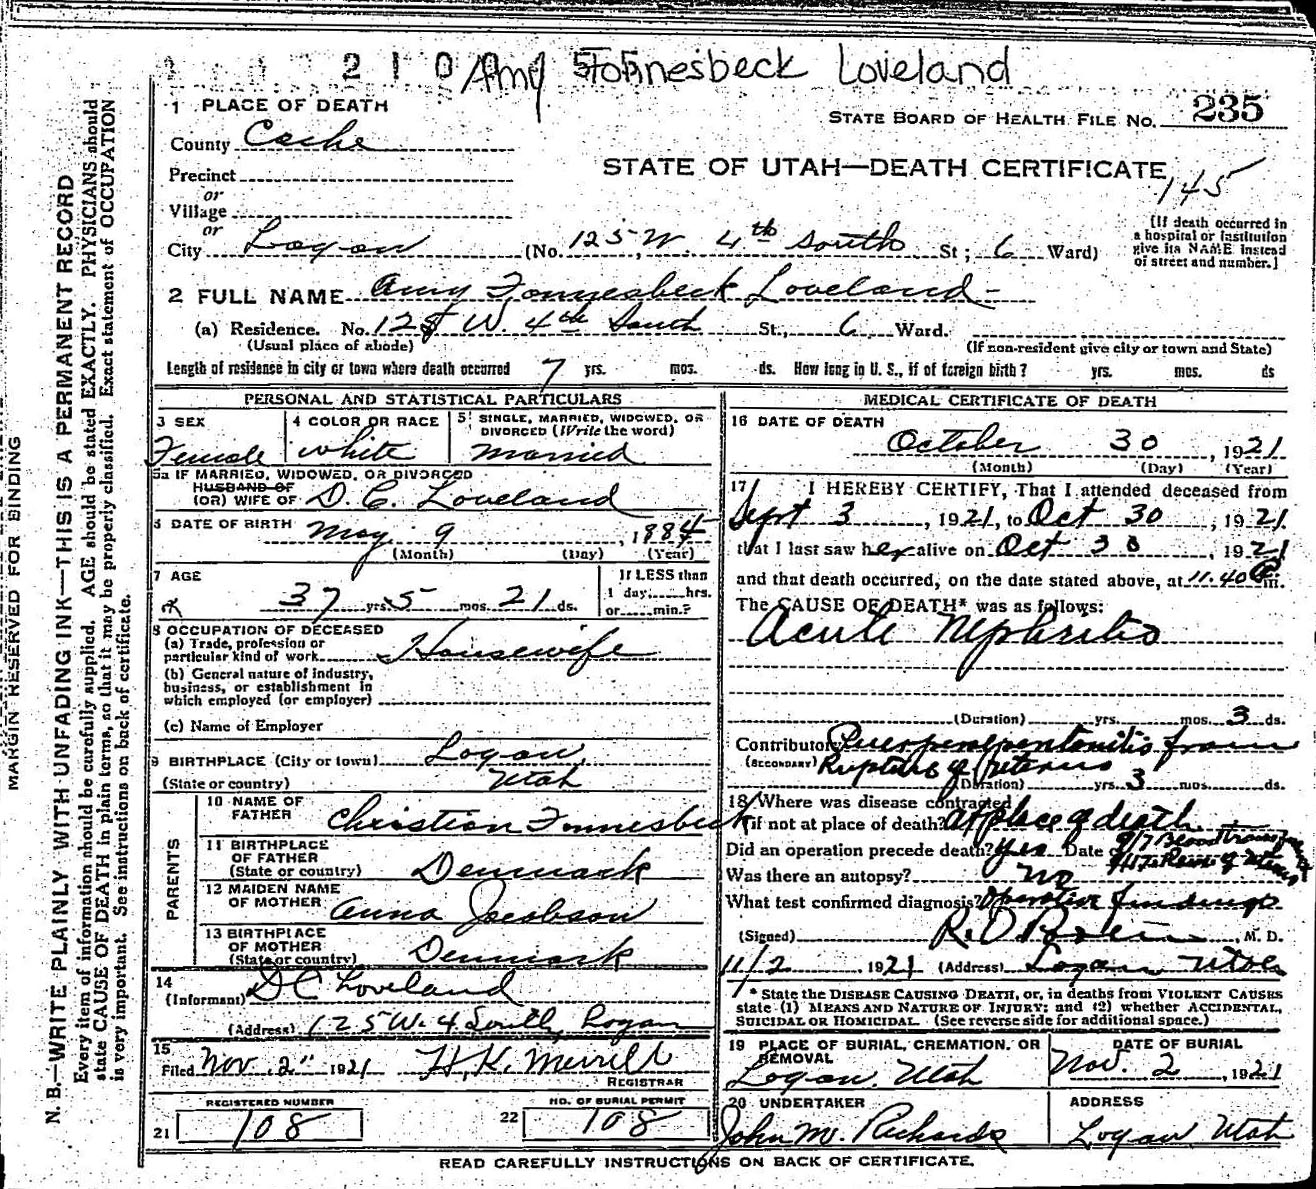 2 1 0 0 5 5
Amy Fonnesbeck Loveland
1 PLACE OF DEATH
County Cache
STATE BOARD OF HEALTH FILE No. 235
STATE OF UTAH—DEATH CERTIFICATE
145
Precinct
or
Village
or
City Logan (No. 125 W. 4th South St; 6 Ward)
[If death occurred in
a hospital or institution
give its NAME instead
of street and number.]
2 FULL NAME Amy Fonnesbeck Loveland
(a) Residence. No. 125 W 4th South St., 6 Ward.
(Usual place of abode) (If non-resident give city or town and State)
Length of residence in city or town where death occurred 7 yrs. mos. ds. How long in U. S., if of foreign birth? yrs. mos. ds
PERSONAL AND STATISTICAL PARTICULARS
3 SEX
Female
4 COLOR OR RACE
White
5 SINGLE, MARRIED, WIDOWED, OR
DIVORCED (Write the word)
Married
5a IF MARRIED, WIDOWED, OR DIVORCED
HUSBAND OF
(OR) WIFE OF D. C. Loveland
6 DATE OF BIRTH May 9, 1884
(Month) (Day) (Year)
7 AGE
37 yrs. 5 mos. 21 ds.
If LESS than
1 day, hrs.
or min.?
8 OCCUPATION OF DECEASED
(a) Trade, profession or
particular kind of work Housewife
(b) General nature of industry,
business, or establishment in
which employed (or employer)
(c) Name of Employer
9 BIRTHPLACE (City or town) Logan
(State or country) Utah
PARENTS
10 NAME OF
FATHER Christian Fonnesbeck
11 BIRTHPLACE
OF FATHER
(State or country) Denmark
12 MAIDEN NAME
OF MOTHER Anna Jacobson
13 BIRTHPLACE
OF MOTHER
(State or country) Denmark
14
(Informant) D C Loveland
(Address) 125 W. 4 South, Logan
15
Filed Nov. 2" 1921 H. K. Merrill
REGISTRAR
REGISTERED NUMBER
21 108
NO. OF BURIAL PERMIT
22 108
MEDICAL CERTIFICATE OF DEATH
16 DATE OF DEATH
October 30, 1921
(Month) (Day) (Year)
17 I HEREBY CERTIFY, That I attended deceased from
Sept 3, 1921, to Oct 30, 1921
that I last saw her alive on Oct 30, 1921
and that death occurred, on the date stated above, at 11.40 P m.
The CAUSE OF DEATH* was as follows:
Acute Nephritis
(Duration) yrs. mos. 3 ds.
Contributory Puerperal peritonitis from
(SECONDARY) Rupture of Uterus
(Duration) yrs. 3 mos. ds.
18 Where was disease contracted
if not at place of death? At place of death
Did an operation precede death? yes Date of 9/7 Blood transfusion
Was there an autopsy? no
What test confirmed diagnosis? Operative findings
(Signed) M. D.
11/2 1921 (Address) Logan Utah
* State the DISEASE CAUSING DEATH, or, in deaths from VIOLENT CAUSES
state (1) MEANS AND NATURE OF INJURY; and (2) whether ACCIDENTAL,
SUICIDAL OR HOMICIDAL. (See reverse side for additional space.)
19 PLACE OF BURIAL, CREMATION, OR
REMOVAL
Logan, Utah
DATE OF BURIAL
Nov. 2, 1921
20 UNDERTAKER
John M. Richards
ADDRESS
Logan Utah
READ CAREFULLY INSTRUCTIONS ON BACK OF CERTIFICATE.
MARGIN RESERVED FOR BINDING
N. B.—WRITE PLAINLY WITH UNFADING INK—THIS IS A PERMANENT RECORD
Every item of information should be carefully supplied. AGE should be stated EXACTLY. PHYSICIANS should
state CAUSE OF DEATH in plain terms, so that it may be properly classified. Exact statement of OCCUPATION
is very important. See instructions on back of certificate.